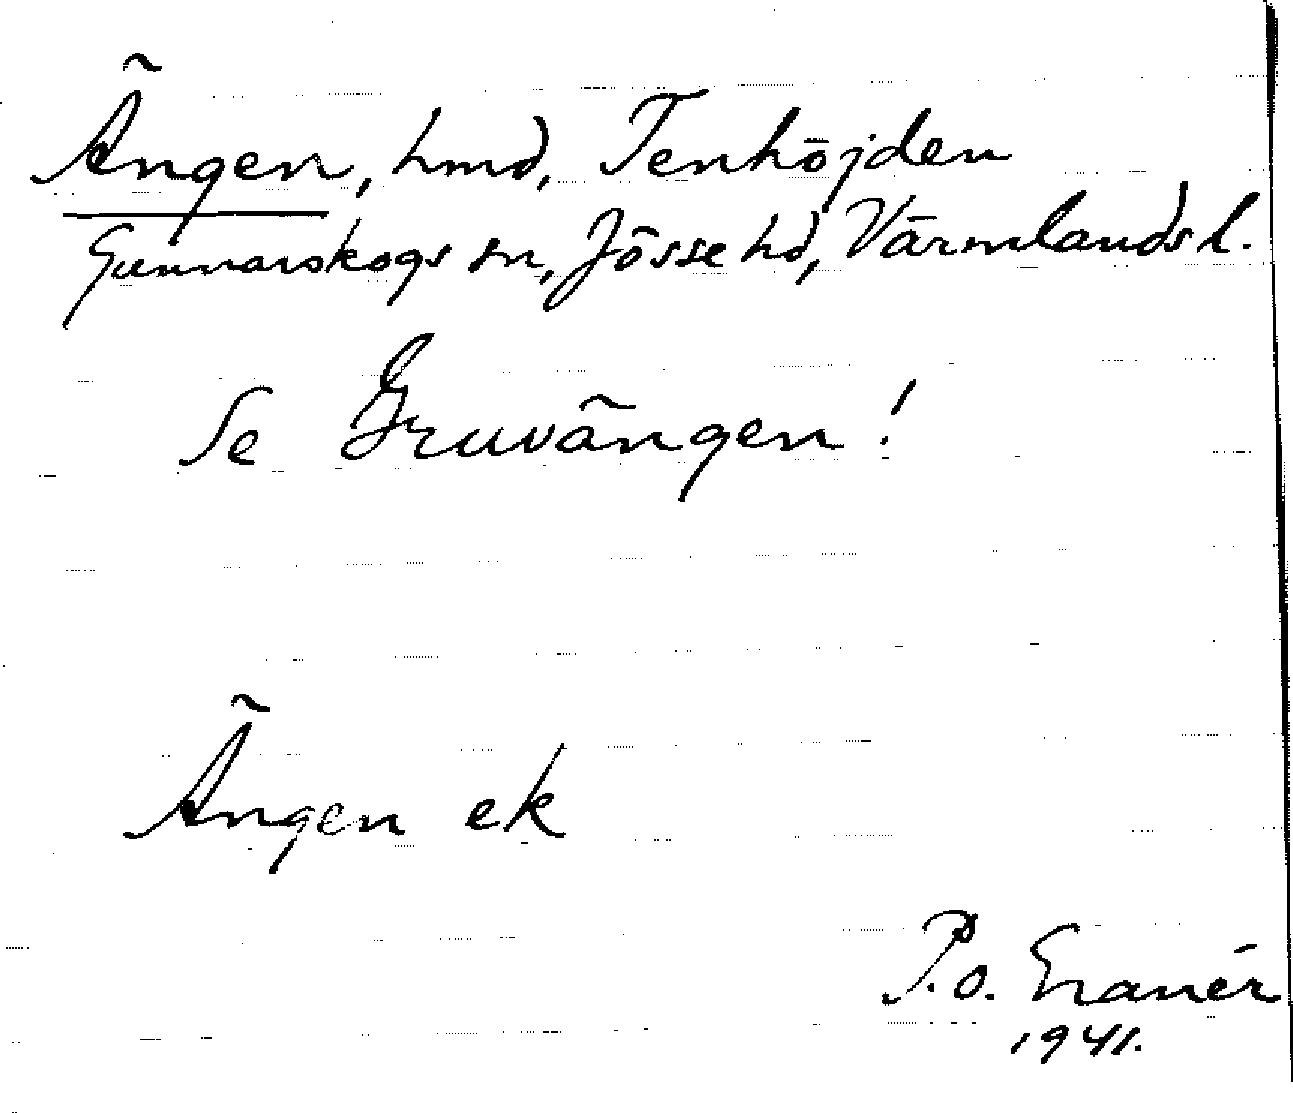 Ängen, hmd, Tenhöjden
Gunnarskogs sn, Jösse hd, Värmlands l.
Se Gruvängen!
Ängen ek
P.O. Granér
1941.